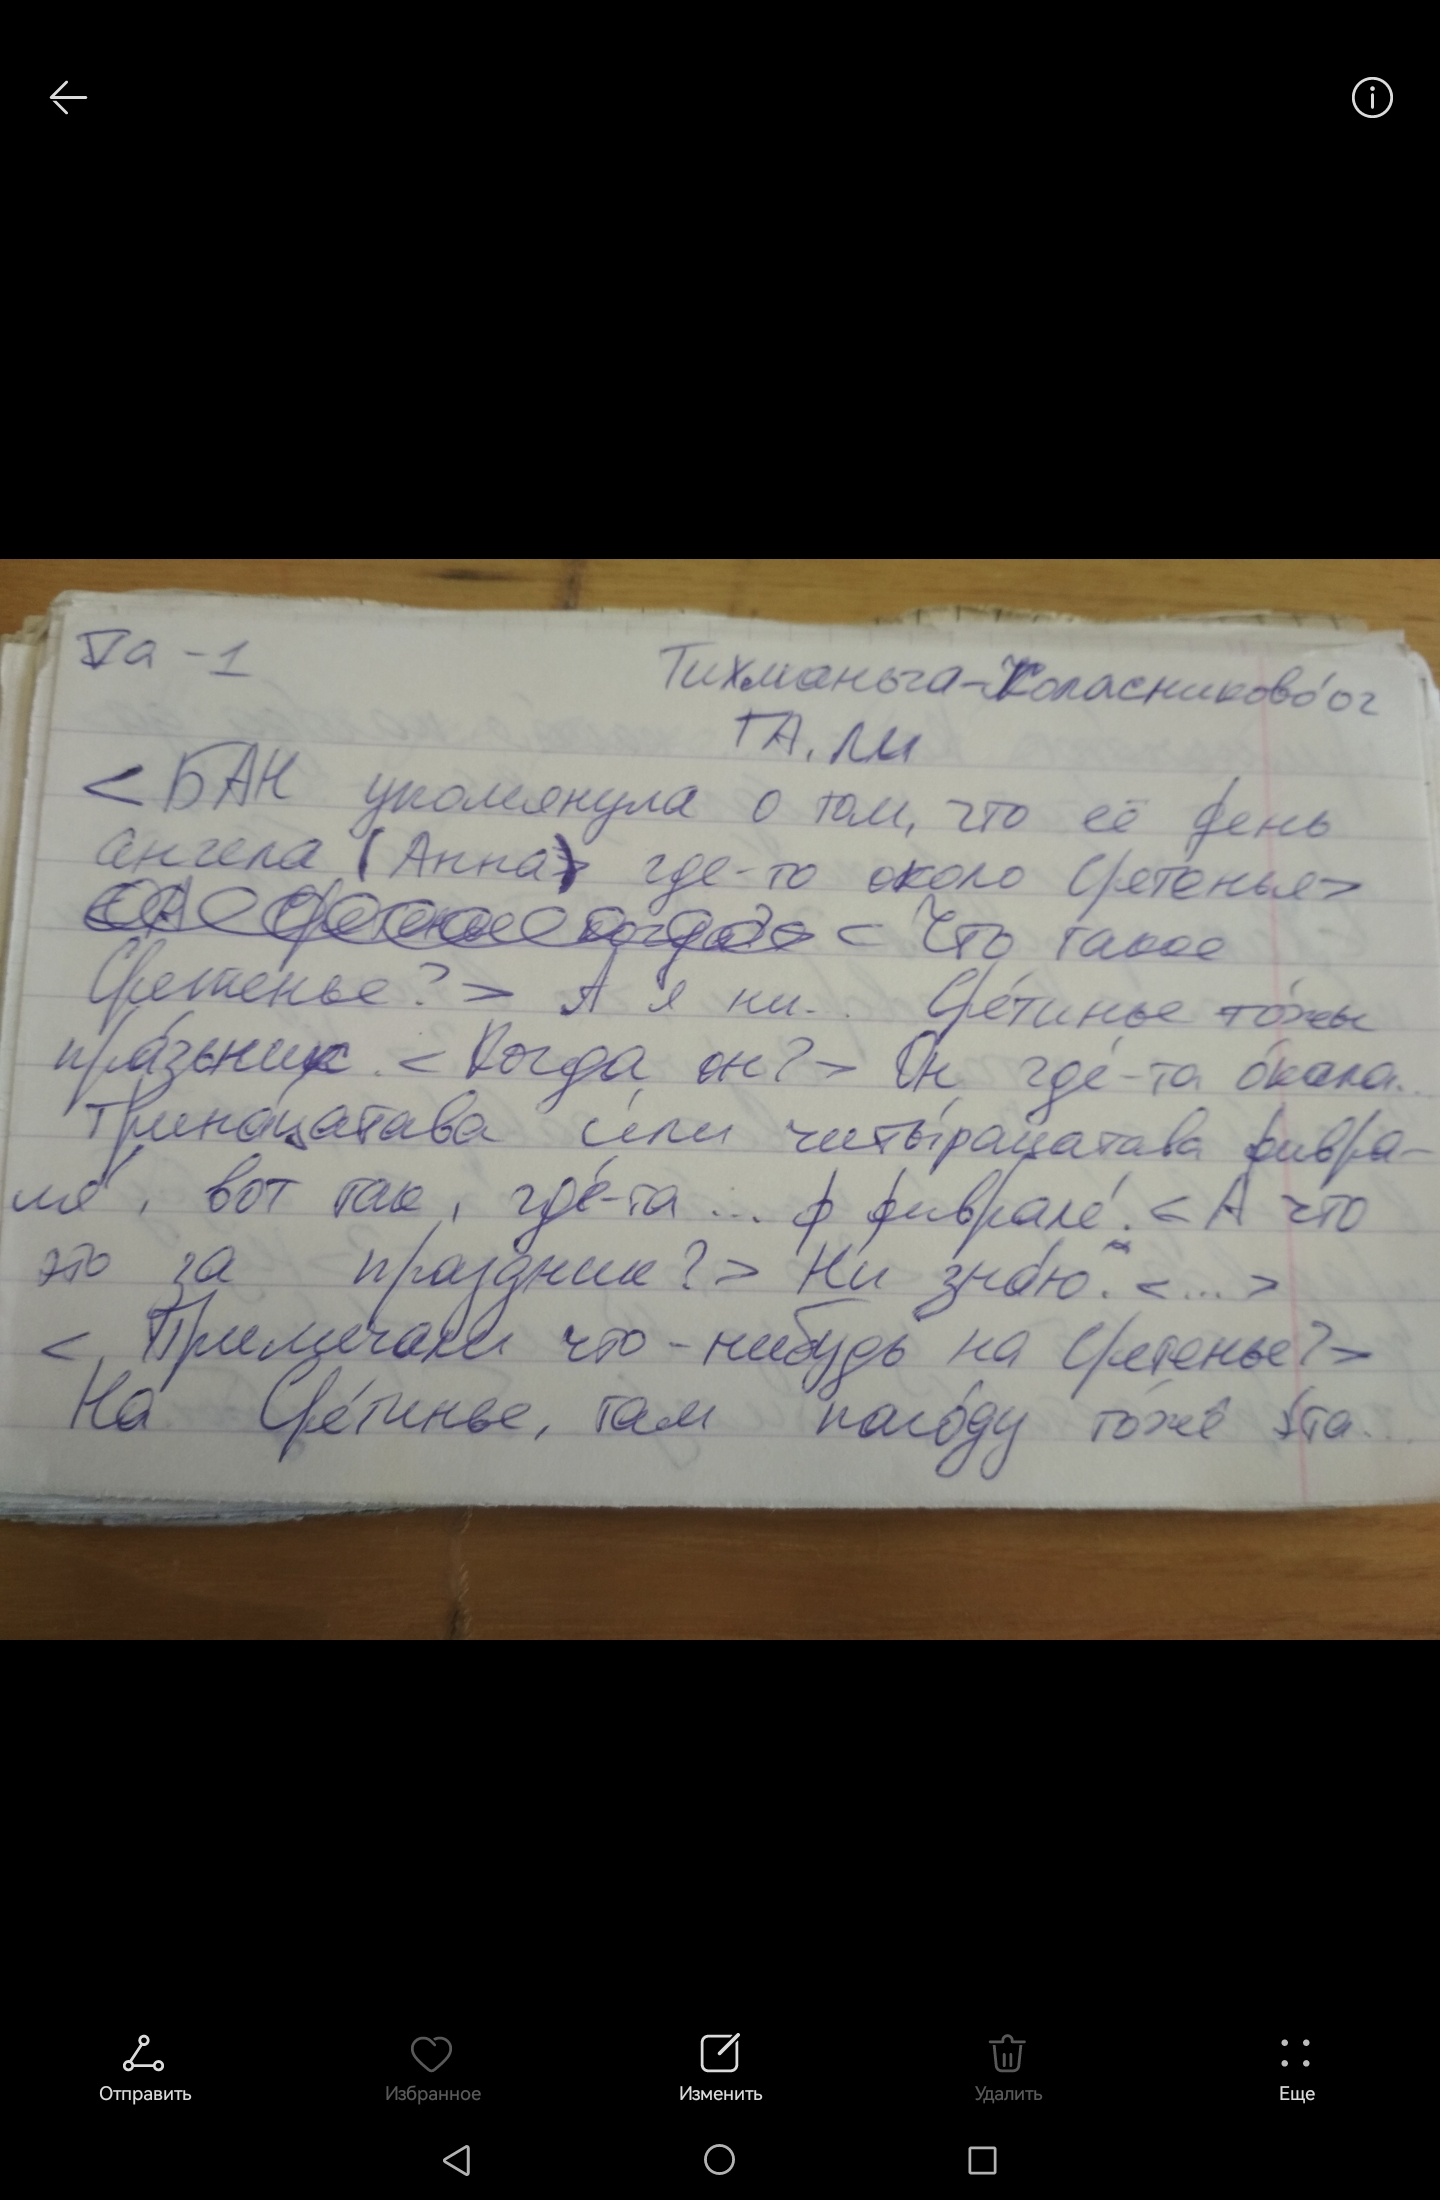 Vа - 1
Тихманьга-Коласниково́ ог
ГА, ЛИ
<БАН упомянула о том, что её день
ангела (Анна) где-то около Сретенья>
<Что такое
Сретенье?> А я ни... Сре́тинье то́жы
пра́зьник. <Когда он?> Он где́-та о́кала...
Трина́цатава и́ли читы́рацатава фивра-
ля́, вот так, где́-та ... ф феврале́. <А что
это за праздник?> Ни зна́ю. <...>
<Примечали что-нибудь на Сретенье?>
На Сре́тинье, там паго́ду то́же э́та...
Отправить
Избранное
Изменить
Удалить
Еще